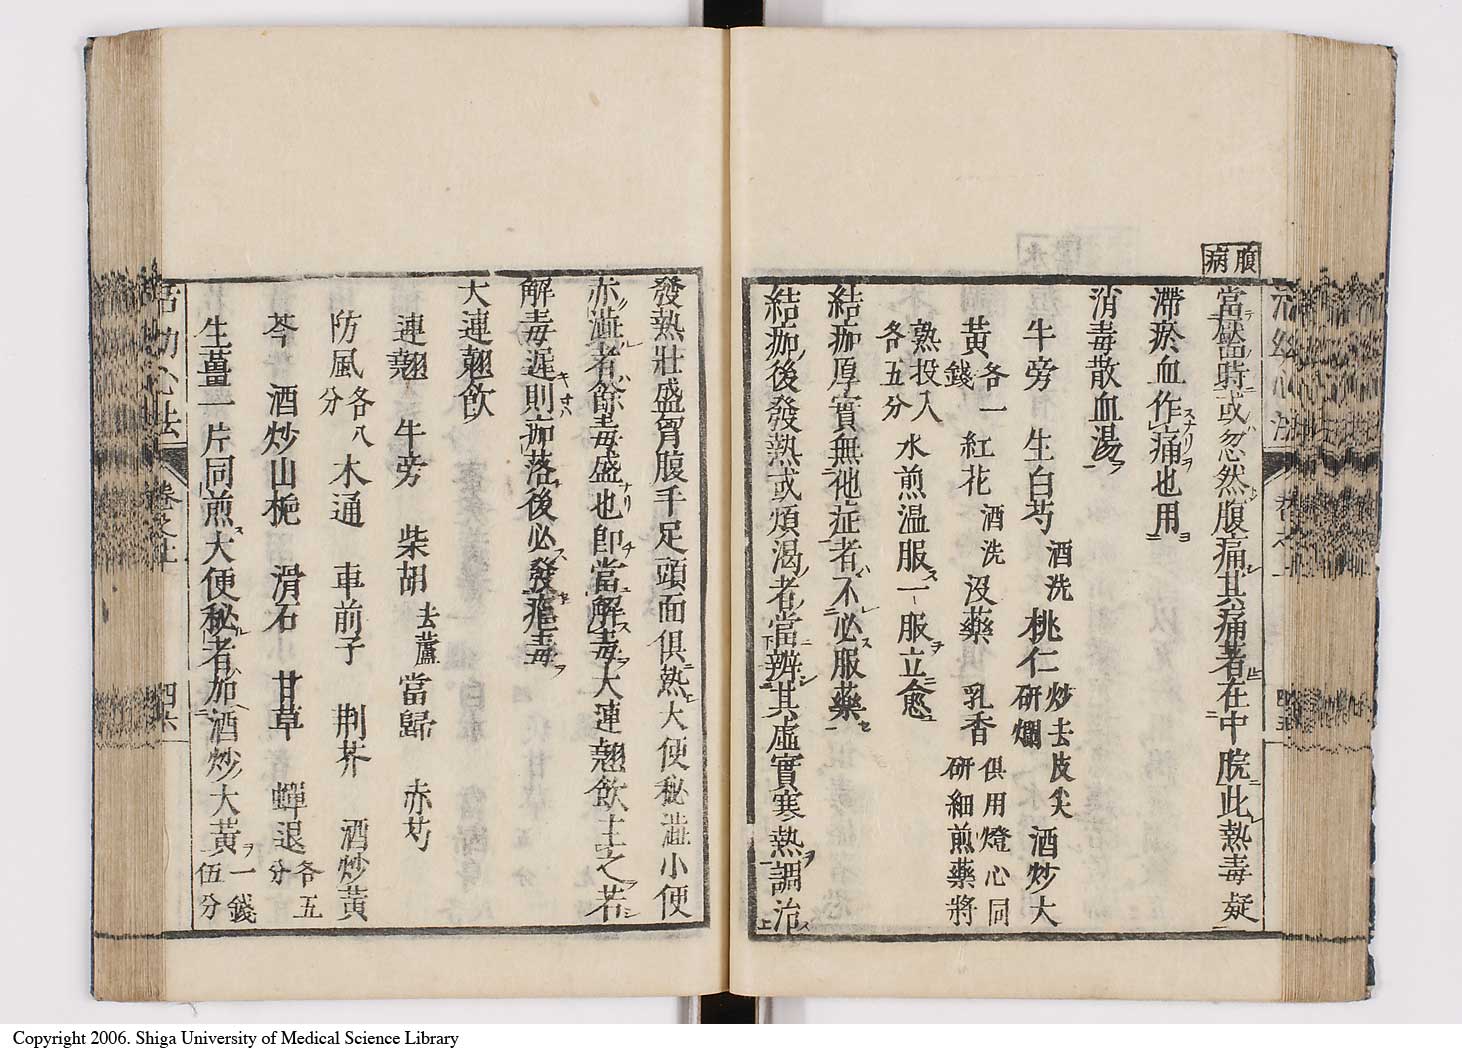 腹病
當靨時或忽然腹痛其痛者在中脘此熱毒疑
滯瘀血作痛也用
消毒散血湯
牛旁 生白芍酒洗 桃仁炒去皮尖研爛 酒炒大
黃各一錢 紅花酒洗 没藥 乳香俱用燈心同研細煎藥將
熟投入各五分 水煎温服一服立愈
結痂厚實無他症者不必服藥
結痂後發熱或煩渴者當辨其虛實寒熱調治
發熱壯盛胃腹手足頭面俱熱大便秘澁小便
赤澁者餘毒盛也卽當解毒大連翹飲主之若
解毒遲則痂落後必發疮毒
大連翹飲
連翹 牛旁 柴胡去蘆 當歸 赤芍
防風各八分 木通 車前子 荆芥 酒炒黃
芩 酒炒山梔 滑石 甘草 蟬退各五分
生薑一片同煎大便秘者加酒炒大黃一錢伍分
活幼心法 卷之七 四六
Copyright 2006. Shiga University of Medical Science Library